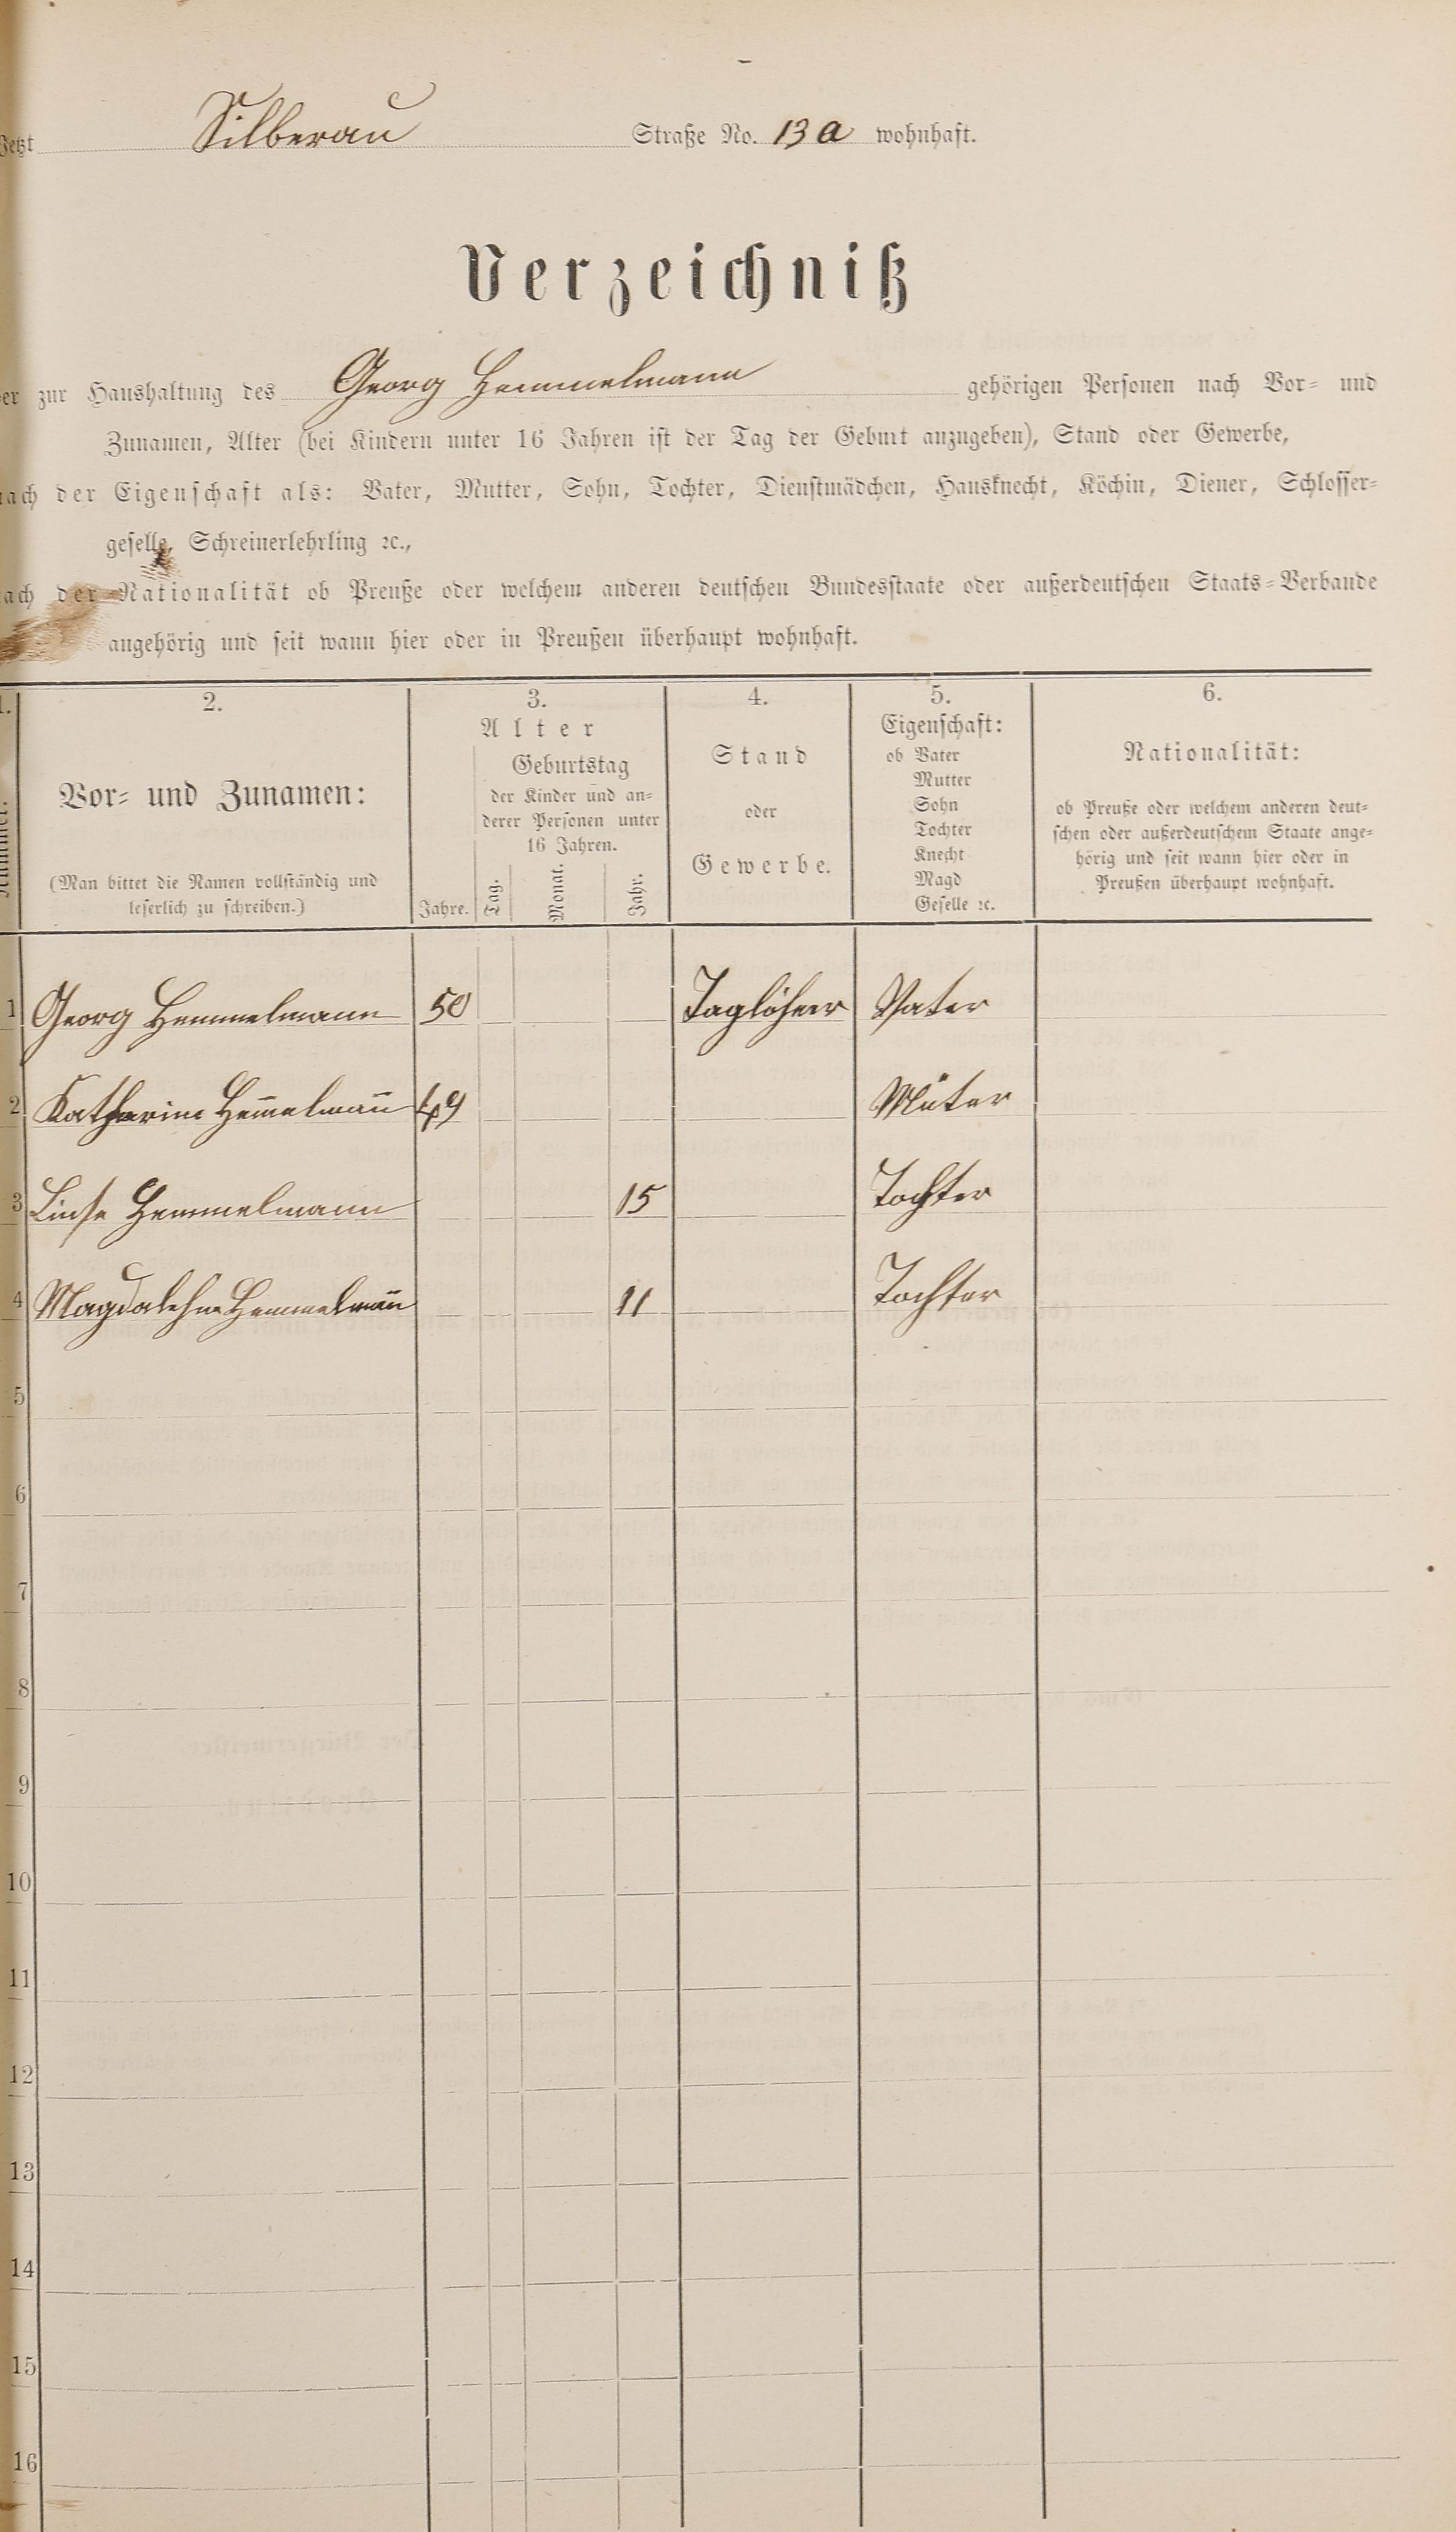 Jetzt Silberau Straße No. 13 a wohnhaft.
Verzeichniß
der zur Haushaltung des Georg Hemmelmann gehörigen Personen nach Vor- und
Zunamen, Alter (bei Kindern unter 16 Jahren ist der Tag der Geburt anzugeben), Stand oder Gewerbe,
nach der Eigenschaft als: Vater, Mutter, Sohn, Tochter, Dienstmädchen, Hausknecht, Köchin, Diener, Schlosser-
geselle, Schreinerlehrling ꝛc.,
nach der Nationalität ob Preuße oder welchem anderen deutschen Bundesstaate oder außerdeutschen Staats-Verbande
angehörig und seit wann hier oder in Preußen überhaupt wohnhaft.
1. 2. 3. 4. 5. 6.
Nummer.
Vor- und Zunamen:
(Man bittet die Namen vollständig und
leserlich zu schreiben.)
Alter
Geburtstag
der Kinder und an-
derer Personen unter
16 Jahren.
Jahre. Tag. Monat. Jahr.
Stand
oder
Gewerbe.
Eigenschaft:
ob Vater
Mutter
Sohn
Tochter
Knecht
Magd
Geselle ꝛc.
Nationalität:
ob Preuße oder welchem anderen deut-
schen oder außerdeutschem Staate ange-
hörig und seit wann hier oder in
Preußen überhaupt wohnhaft.
1 Georg Hemmelmann 50 Taglöhner Vater
2 Katharine Hem̅elman̅ 49 Muter
3 Hemmelmann 15 Tochter
4 Magdalehna Hemmelman̅ 11 Tochter
5
6
7
8
9
10
11
12
13
14
15
16